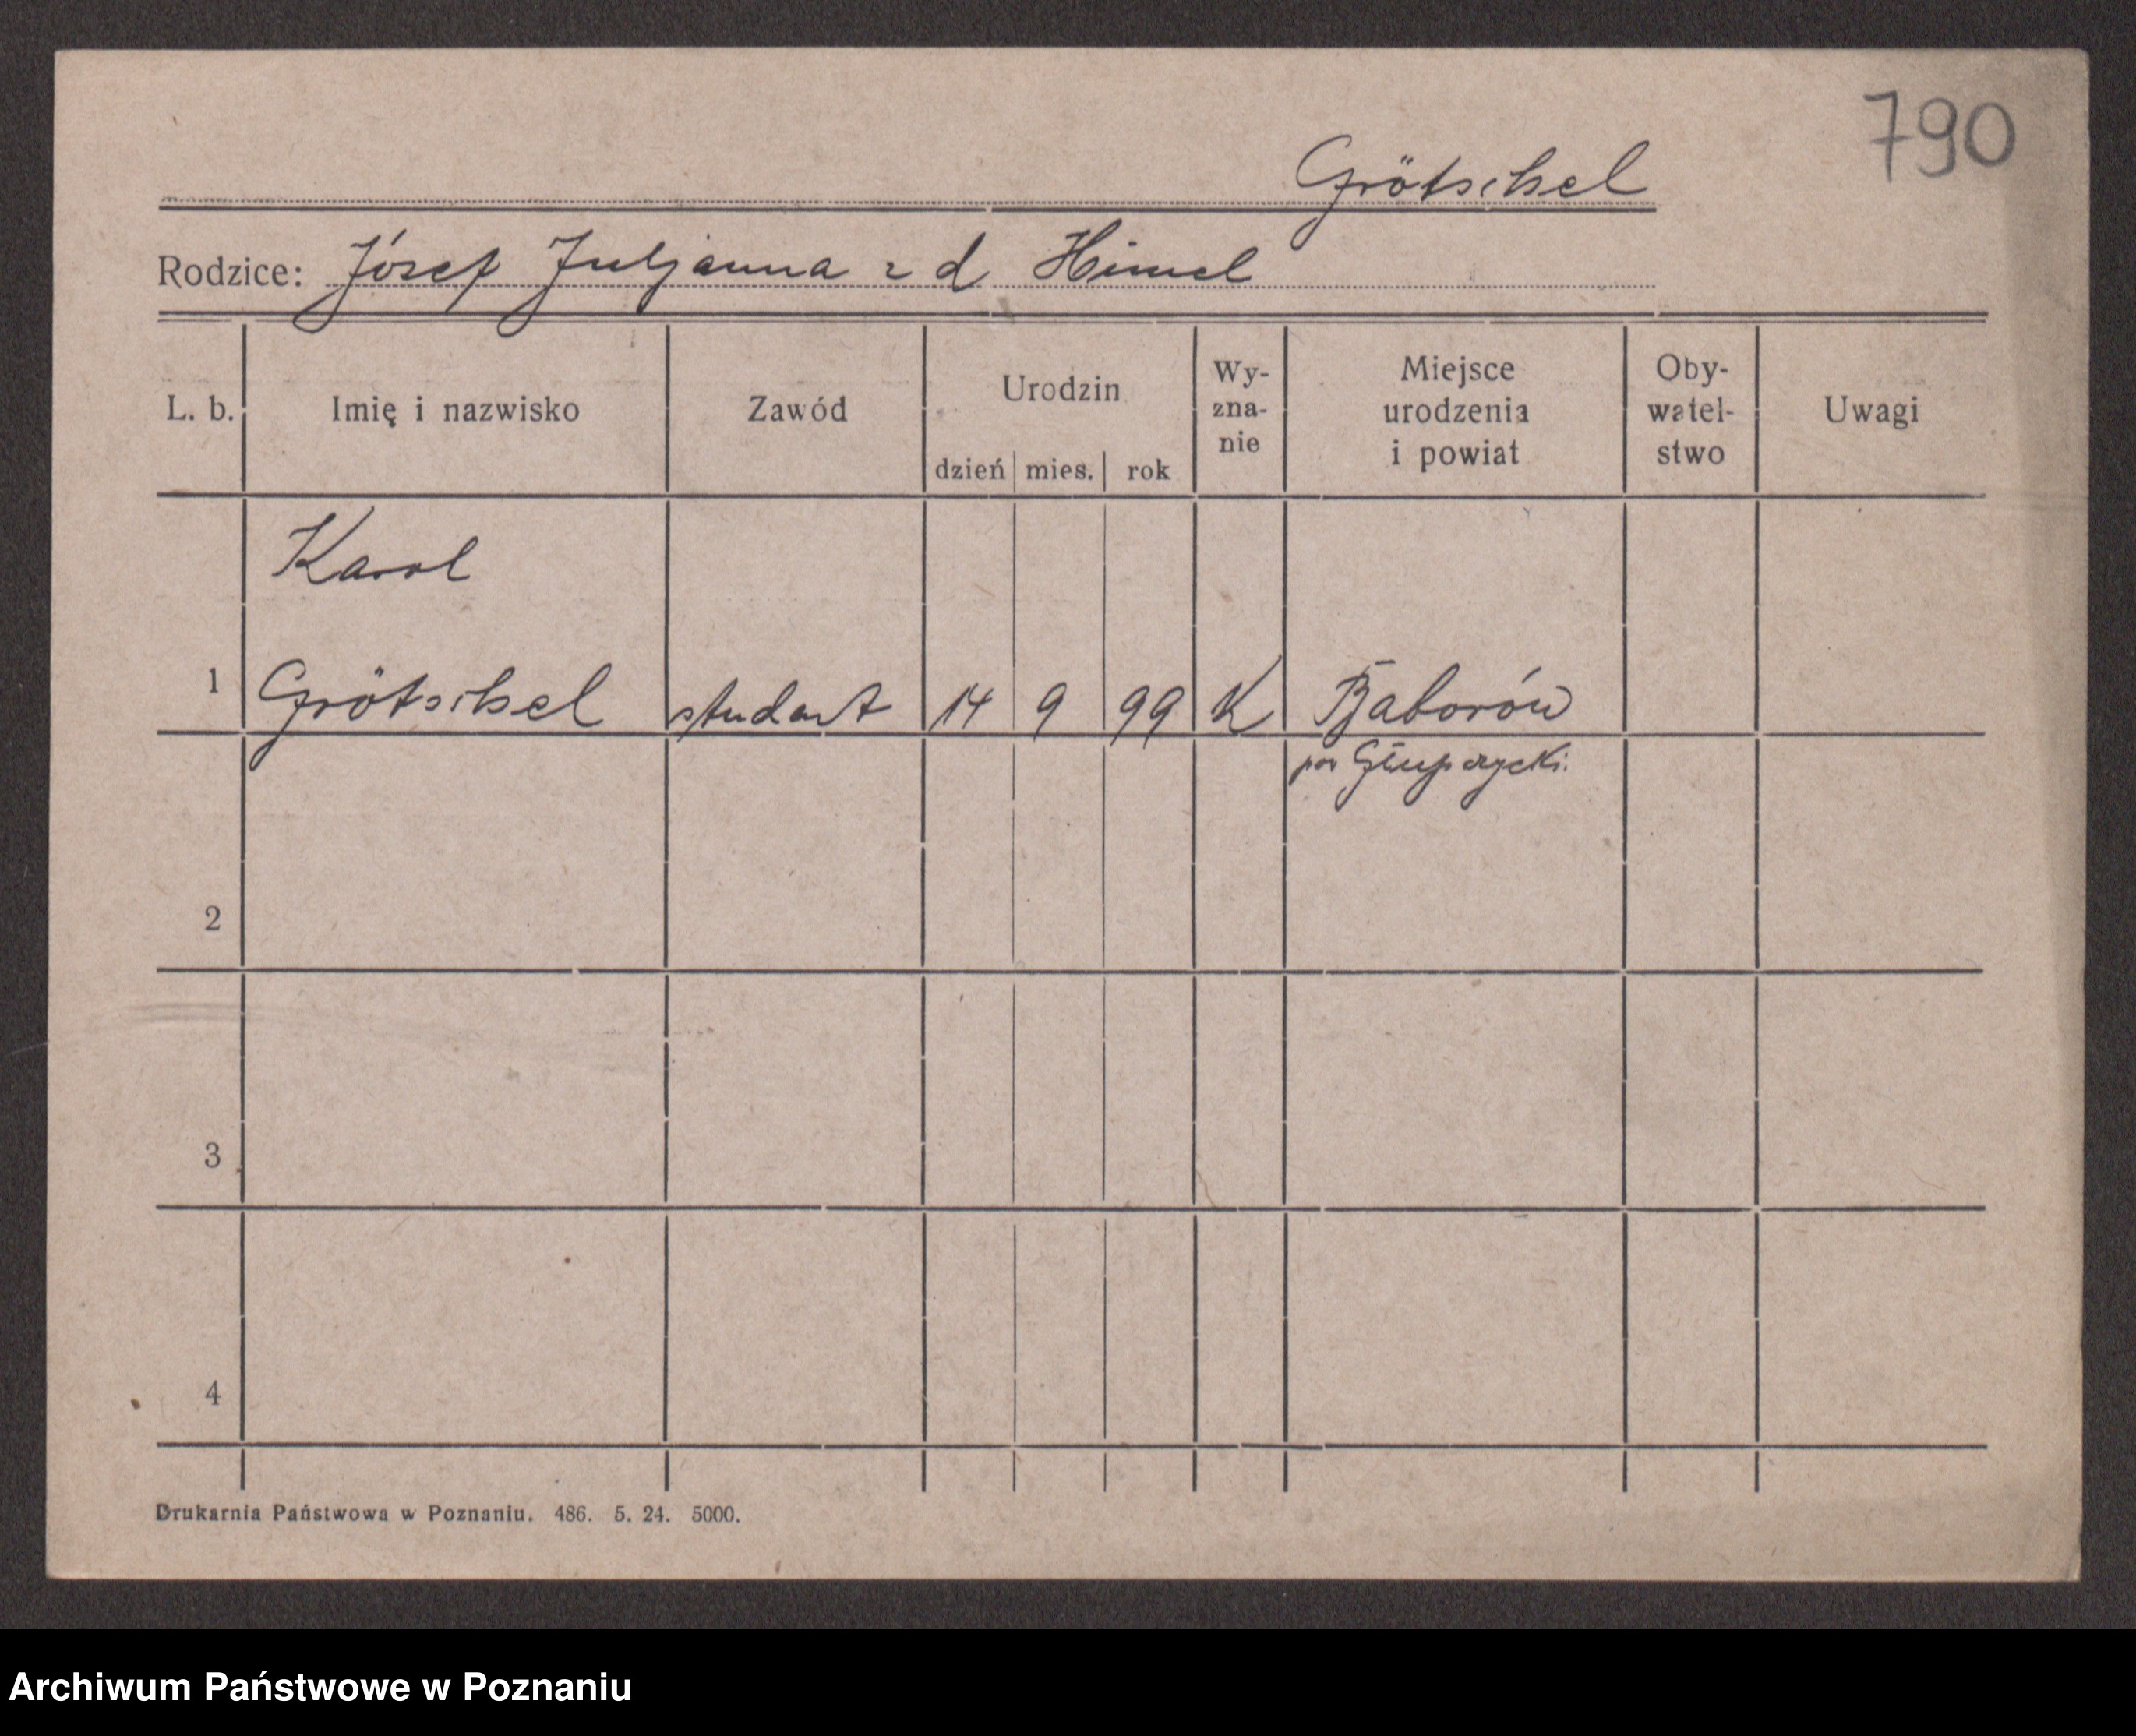 790
Grötschel
Rodzice: Józef Juljanna z d Himel
L. b. Imię i nazwisko Zawód Urodzin dzień mies. rok Wy-zna-nie Miejsce urodzenia i powiat Oby-watel-stwo Uwagi
Karol
1 Grötschel student 14 9 99 K Baborów
pow Głupczycki.
2
3
4
Drukarnia Państwowa w Poznaniu. 486. 5. 24. 5000.
Archiwum Państwowe w Poznaniu